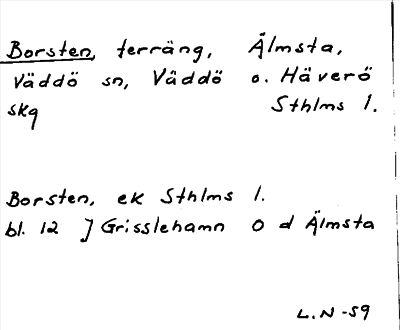 Borsten, terräng, Älmsta,
Väddö sn, Väddö o. Häverö
skg Sthlms l.
Borsten, ek Sthlms l.
bl. 12 J Grisslehamn O d Älmsta
L.N-59